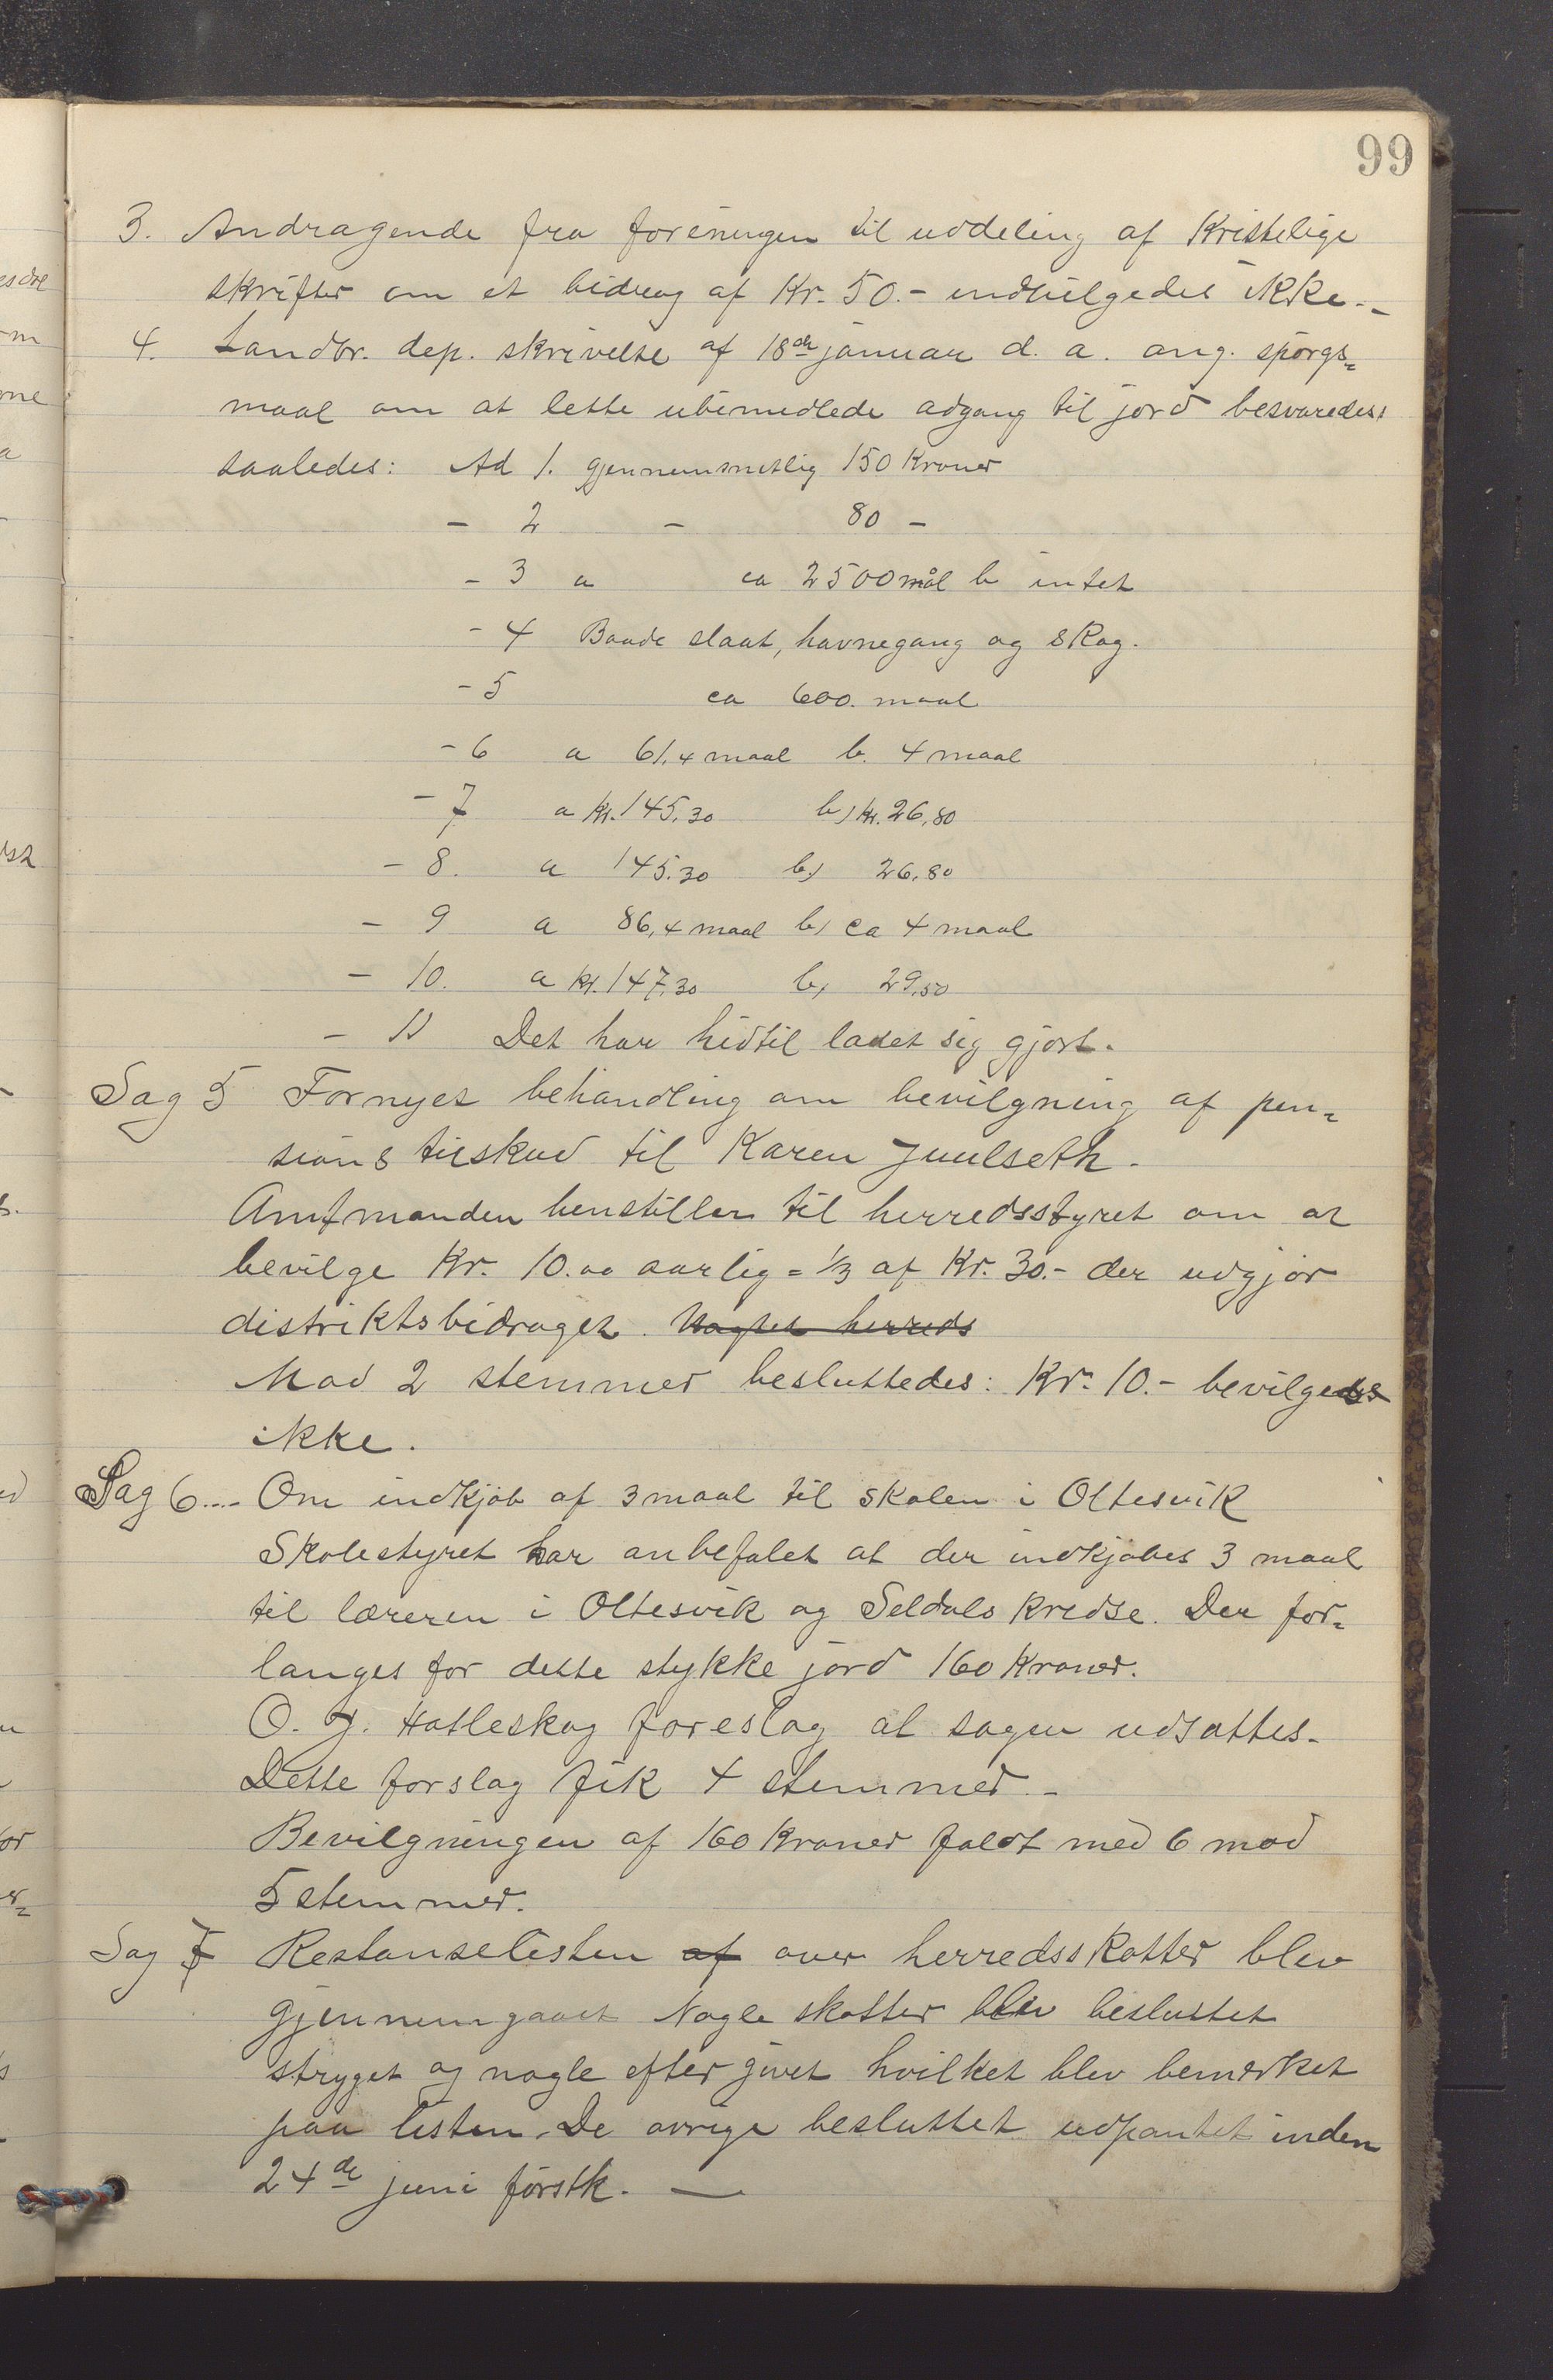 99
3. Andragende fra foreningen til uddeling af Kristelige
skrifter om et bidrag af Kr. 50.- indvilgedes ikke.-
4. Landbr. dep. skrivelse af 18de januar d. a. ang. spørgs=
maal om at lette ubemidlede adgang til jord besvaredes
saaledes: Ad 1. gjennemsnitlig 150 Kroner
- 2 - 80 -
- 3 a ca 2500 mål b intet
- 4 Baade slaat, havnegang og skog.
- 5 ca 600. maal
- 6 a 61,4 maal b. 4 maal
- 7 a kr. 145,30 b) kr. 26,80
- 8. a 145.30 b) 26,80
- 9 a 86,4 maal b) ca 4 maal
- 10. a kr. 147,30 b) 29,50
- 11 Det har hidtil ladet sig gjort.
Sag 5 Fornyet behandling om bevilgning af pen=
sions tilskud til Karen Juulseth.
Amtmanden henstiller til herredsstyret om at
bevilge Kr. 10.00 aarlig = 1/3 af Kr. 30.- der udgjør
distriktsbidraget. herreds
Mod 2 stemmer besluttedes: Kr. 10.- bevilgedes
ikke.
Sag 6.... Om indkjøb af 3 maal til skolen i Oltesvik
Skolestyret har anbefalet at der indkjøbes 3 maal
til læreren i Oltesvik og Seldals kredse. Der for=
langes for dette stykke jord 160 Kroner.
O. J. Hatleskog foreslog at sagen udsattes.
Dette forslag fik 4 stemmer.-
Bevilgningen af 160 Kroner faldt med 6 mod
5 stemmer.
Sag 7 Restanselisten af over herredsskatter blev
gjennemgaaet Nogle skatter blev besluttet
strøget og nogle eftergivet hvilket blev bemerket
paa listen. De øvrige besluttet udpantet inden
24de juni førstk. -